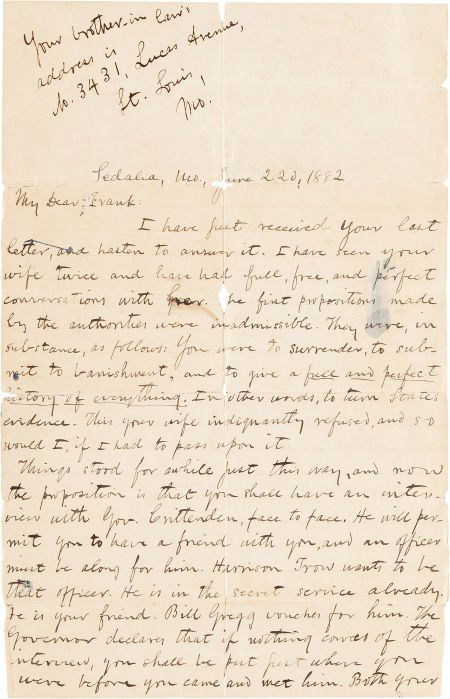 Your brother-in law's
address is
No. 3431, Lucas Avenue,
St. Louis,
Mo.
Sedalia, Mo., June 22d, 1882
My Dear Frank:
I have just received your last
letter, and hasten to answer it. I have seen your
wife twice and have had full, free, and perfect
conversations with her. The first propositions made
by the authorities were inadmissible. They were, in
substance, as follows: You were to surrender, to sub-
mit to banishment, and to give a full and perfect
history of everything. In other words, to turn State's
evidence. This your wife indignantly refused, and so
would I, if I had to pass upon it.
Things stood for awhile just this way, and now
the proposition is that you shall have an inter-
view with Gov. Crittenden, face to face. He will per-
mit you to have a friend with you, and an officer
must be along for him. Harrison Trow wants to be
that officer. He is in the secret service already.
He is your friend. Bill Gregg vouches for him. The
Governor declares that if nothing comes of the
interview, you shall be put just where you
were before you came and met him. Both your